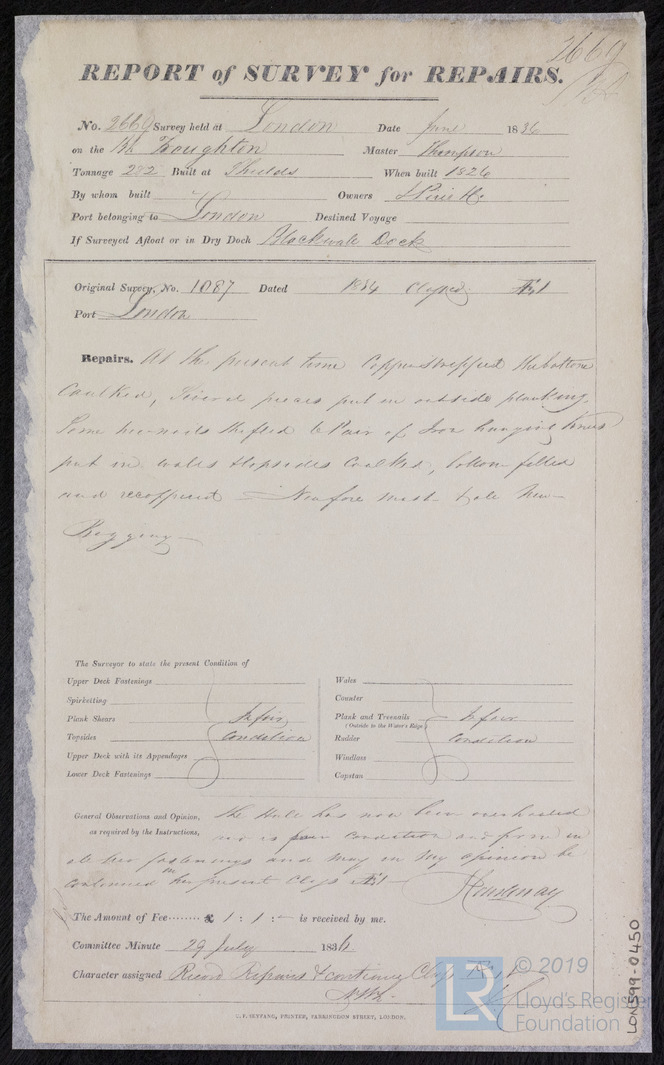 2669
REPORT of SURVEY for REPAIRS.
No. 2669 Survey held at London Date June 1836
on the Bk Houghton Master Thompson
Tonnage 292 Built at Shields When built 1826
By whom built Owners J Pirie &Co
Port belonging to London Destined Voyage
If Surveyed Afloat or in Dry Dock Blackwall Dock
Original Survey, No. 1087 Dated 1834 Classed Æ1
Port London
Repairs. At the present time Copper Stripped the bottom
Caulked, Several pieces put in outside planking.
Some tree-nails shifted 6 Pair of Iron hanging knees
put in. wales topsides Caulked, bottom felted
and recoppered - New fore mast & ale New
Rigging
The Surveyor to state the present Condition of
Upper Deck Fastenings
Spirketting
Plank Shears In fair
Topsides Condition
Upper Deck with its Appendages
Lower Deck Fastenings
Wales
Counter
Plank and Treenails In fair
(Outside to the Water's Edge)
Rudder Condition
Windlass
Capstan
General Observations and Opinion, the Hull has now been overhauled
as required by the Instructions, now is fair Condition and firm in
all her fastenings and may in my opinion be
continued in her present Class Æ1
The Amount of Fee £ 1 : 1 : - is received by me.
Committee Minute 29 July 1836.
Character assigned Record Repaires & continue Class Æ 1
C. F. SEYFANG, PRINTER, FARRINGDON STREET, LONDON.
LR © 2019
Lloyd's Register
Foundation
LON599-0450